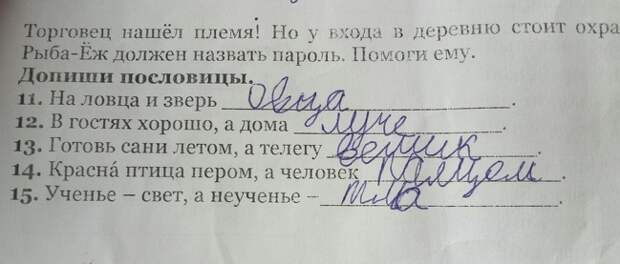 Торговец нашёл племя! Но у входа в деревню стоит охра
Рыба-Ёж должен назвать пароль. Помоги ему.
Допиши пословицы.
11. На ловца и зверь овца.
12. В гостях хорошо, а дома луче.
13. Готовь сани летом, а телегу веник.
14. Краснá птица пером, а человек палцем.
15. Ученье – свет, а неученье – тма.